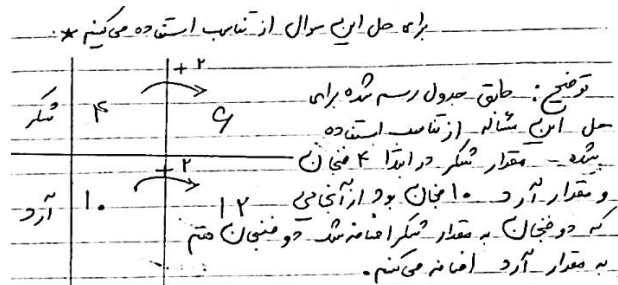 برای حل این سوال از تناسب استفاده می‌کنیم *
+۲
شکر ۴ ۶
+۲
آرد ۱۰ ۱۲
توضیح: طبق جدول رسم شده برای
حل این مساله از تناسب استفاده
شده - مقدار شکر در ابتدا ۴ فنجان
و مقدار آرد ۱۰ فنجان بود از آنجایی
که دو فنجان به مقدار شکر اضافه شد دو فنجان هم
به مقدار آرد اضافه می‌کنیم.